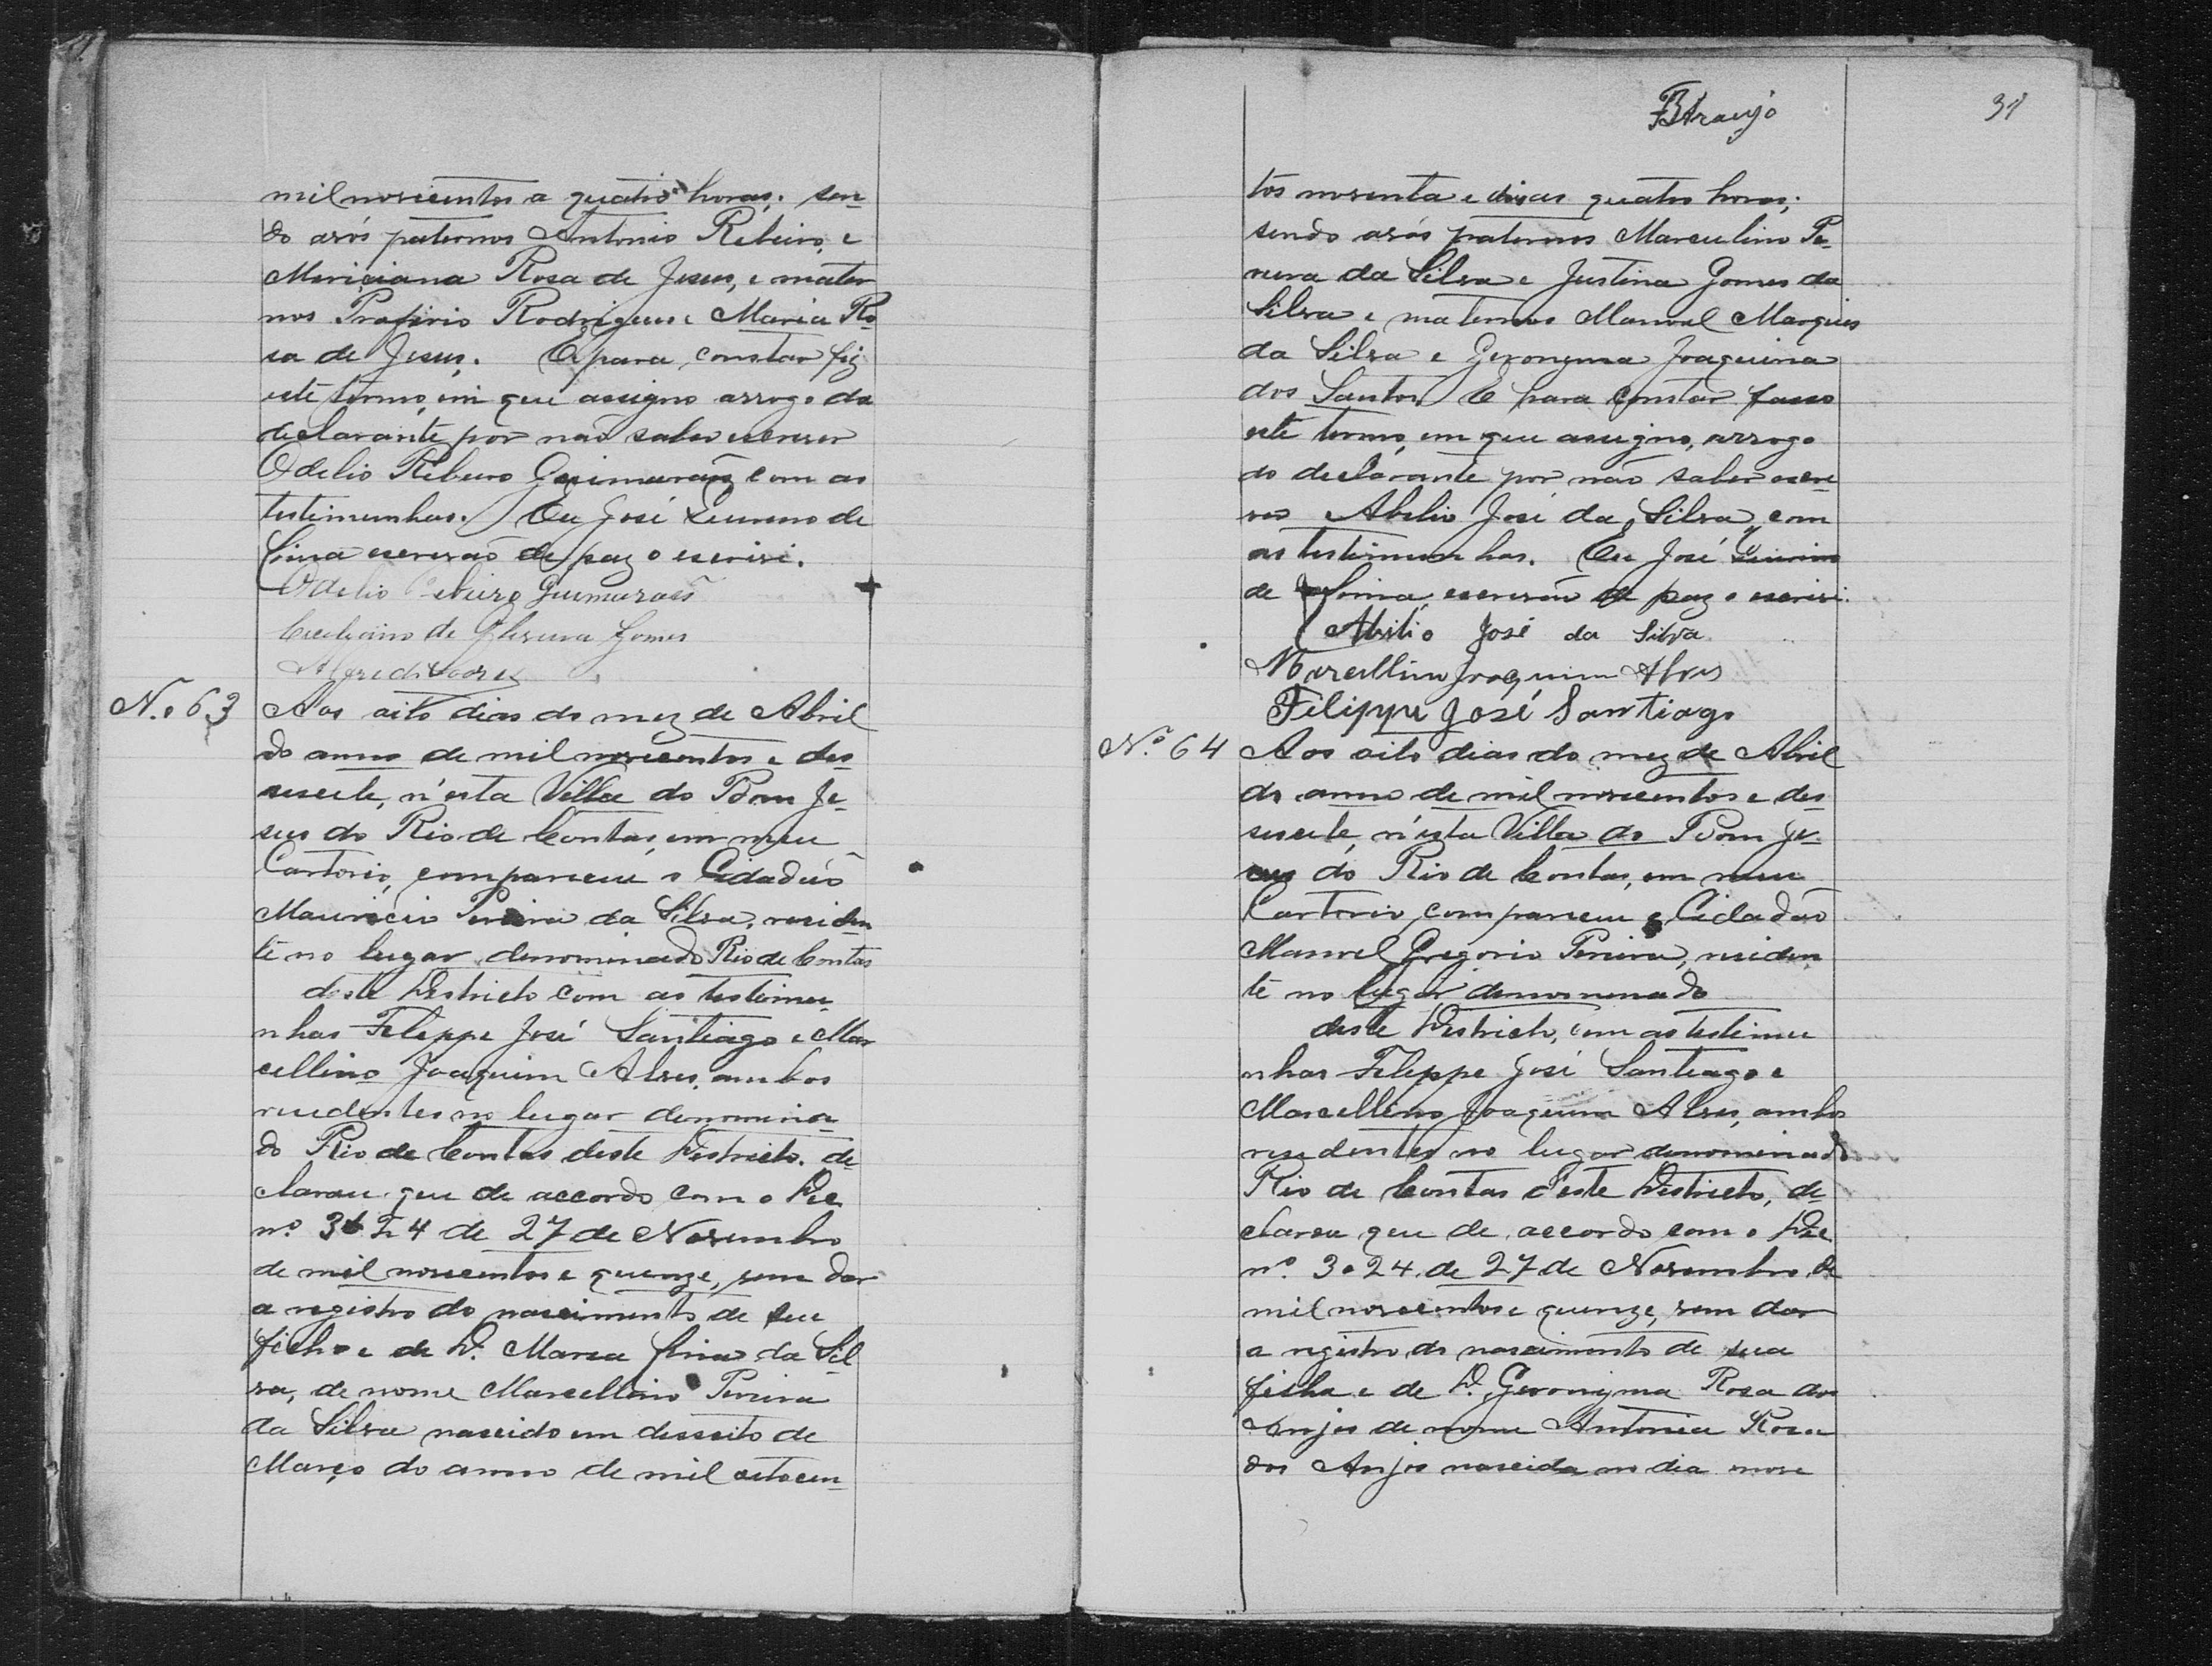 mil novecentos a quatro horas; sen
do avós paternos Antonio Ribeiro e
Mericiana Rosa de Jesus, e mater
nos Profirio Rodrigues e Maria Ro-
sa de Jesus. E para constar fiz
este termo, em que assigno arrogo da
declarante por não saber escrever
Odelio Ribeiro Guimarães com as
testimunhas. Eu José de
Lima escrivão de paz o escrivi.
Odelio Ribeiro Guimarães
de Gomes
N.o 63
Aos oito dias do mez de Abril
do anno de mil novecentos e des
esete, n'esta Villa do Bom Je-
sus do Rio de Contas, em meu
Cartorio, compareceu o Cidadão
Mauricio Pereira da Silva, residen
te no lugar denominado Rio de Contas
deste Districto com as testimu-
nhas Felippe José Santiago e Mar
cellino Joaquim Alves, ambos
residentes no lugar denomina-
do Rio de Contas deste Districto. de
clarou que de accordo com o Dec
nº 3024 de 27 de Novembro
de mil novecentos e quinze, vem dar
a registro do nascimento de seu
filho e de D. Maria Lina da Sil
va, de nome Marcellino Pereira
da Silva nascido em desoito de
Março do anno de mil oitocen-
BAraujo
31
tos noventa e dois as quatro horas;
sendo avós paternos Marculino Pe-
reira da Silva e Justina Gomes da
Silva e maternos Manoel Marques
da Silva e Geronyma Joaquina
dos Santos. E para constar fasso
este termo, em que assigno, arrogo
do declarante por não saber escre-
ver Abilio José da Silva com
as testimunhas. Eu José
de Lima, escrivão de paz o escrivi.
Abilio José da Silva
Marcellino Joaquim Alves
Filippe José Santiago
N.º 64
Aos oito dias do mez de Abril
do anno de mil novecentos e des
esete, n'esta Villa do Bom Je-
sus do Rio de Contas, em meu
Cartorio, compareceu o Cidadão
Manoel Gregorio Pereira, residen
te no lugar denominado
deste Districto, com as testimu
nhas Felippe José Santiago e
Marcellino Joaquim Alves, ambos
residentes no lugar denominado
Rio de Contas d'este Districto, de-
clarou que de accordo com o Dec
nº. 3024 de 27 de Novembro de
mil novecentos e quinze, vem dar
a registro do nascimento de sua
filha e de D. Geronyma Rosa dos
Anjos de nome Antonia Rosa
dos Anjos nascida no dia nove